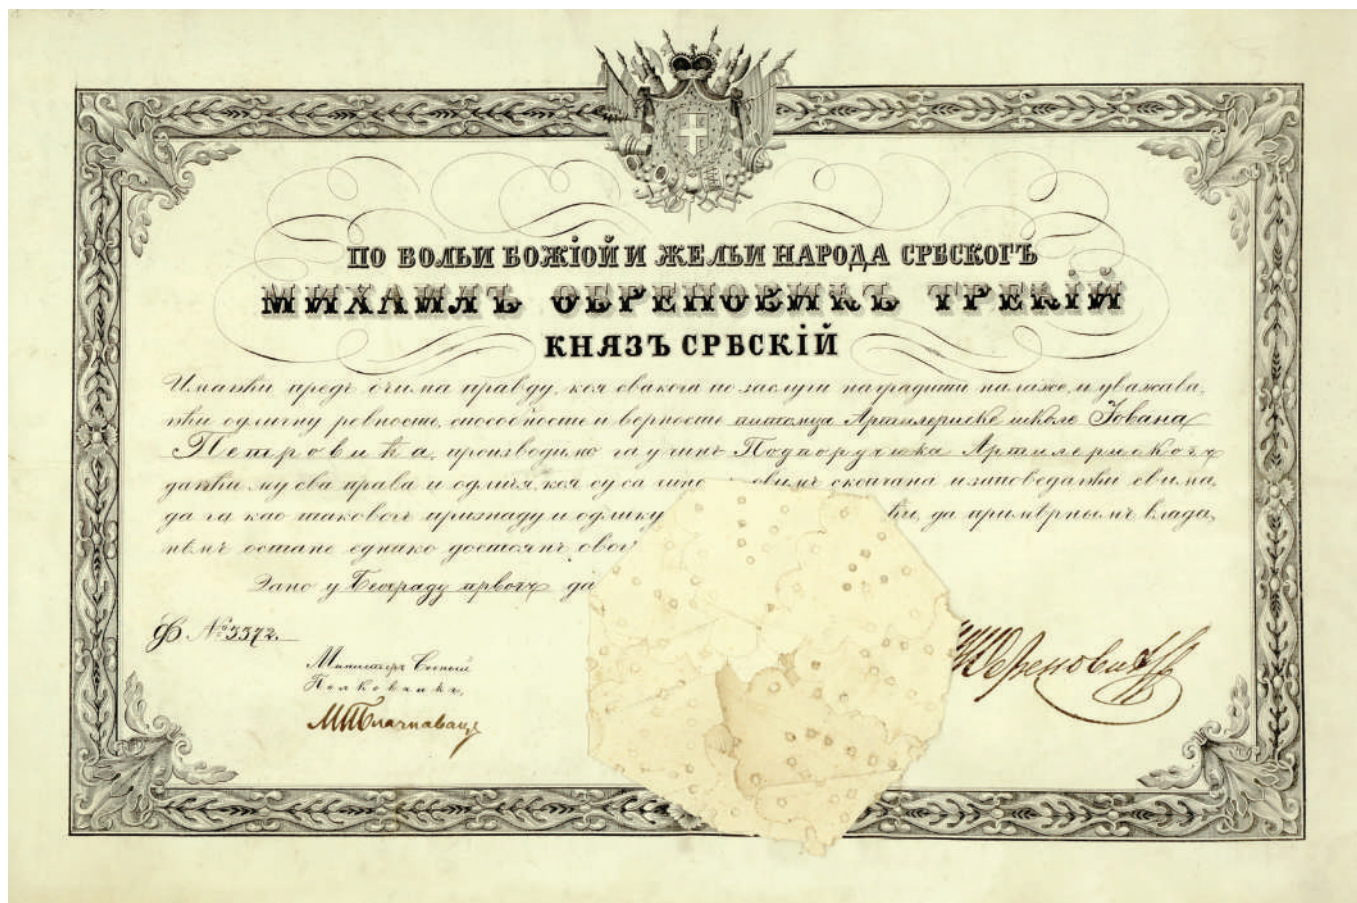 ПО ВОЛЬИ БОЖІОЙ И ЖЕЛЬИ НАРОДА СРБСКОГЪ
МИХАИЛЪ ОБРЕНОВИЋЪ ТРЕЋІЙ
КНЯЗЪ СРБСКІЙ
Имаюћи предъ очима правду, коя свакога по заслуги наградити налаже, и уважава,
юћи одличну ревность, способность и верность питомца Артилериске школе Јована
Петровића, производимо га у чинъ Подпоручика Артилерискогъ
даюћи му сва права и одличія, коя су са овимъ скопчана и заповедаюћи свима,
да га као таковогъ признаду и одлику ћи, да примѣрнымъ влада,
нѣмъ остане еднако достоянъ овог
Дано у Београду првогъ да
Ф № 3372.
Министеръ Военый
Полковникъ,
МПБлазнавацъ
М Обреновић